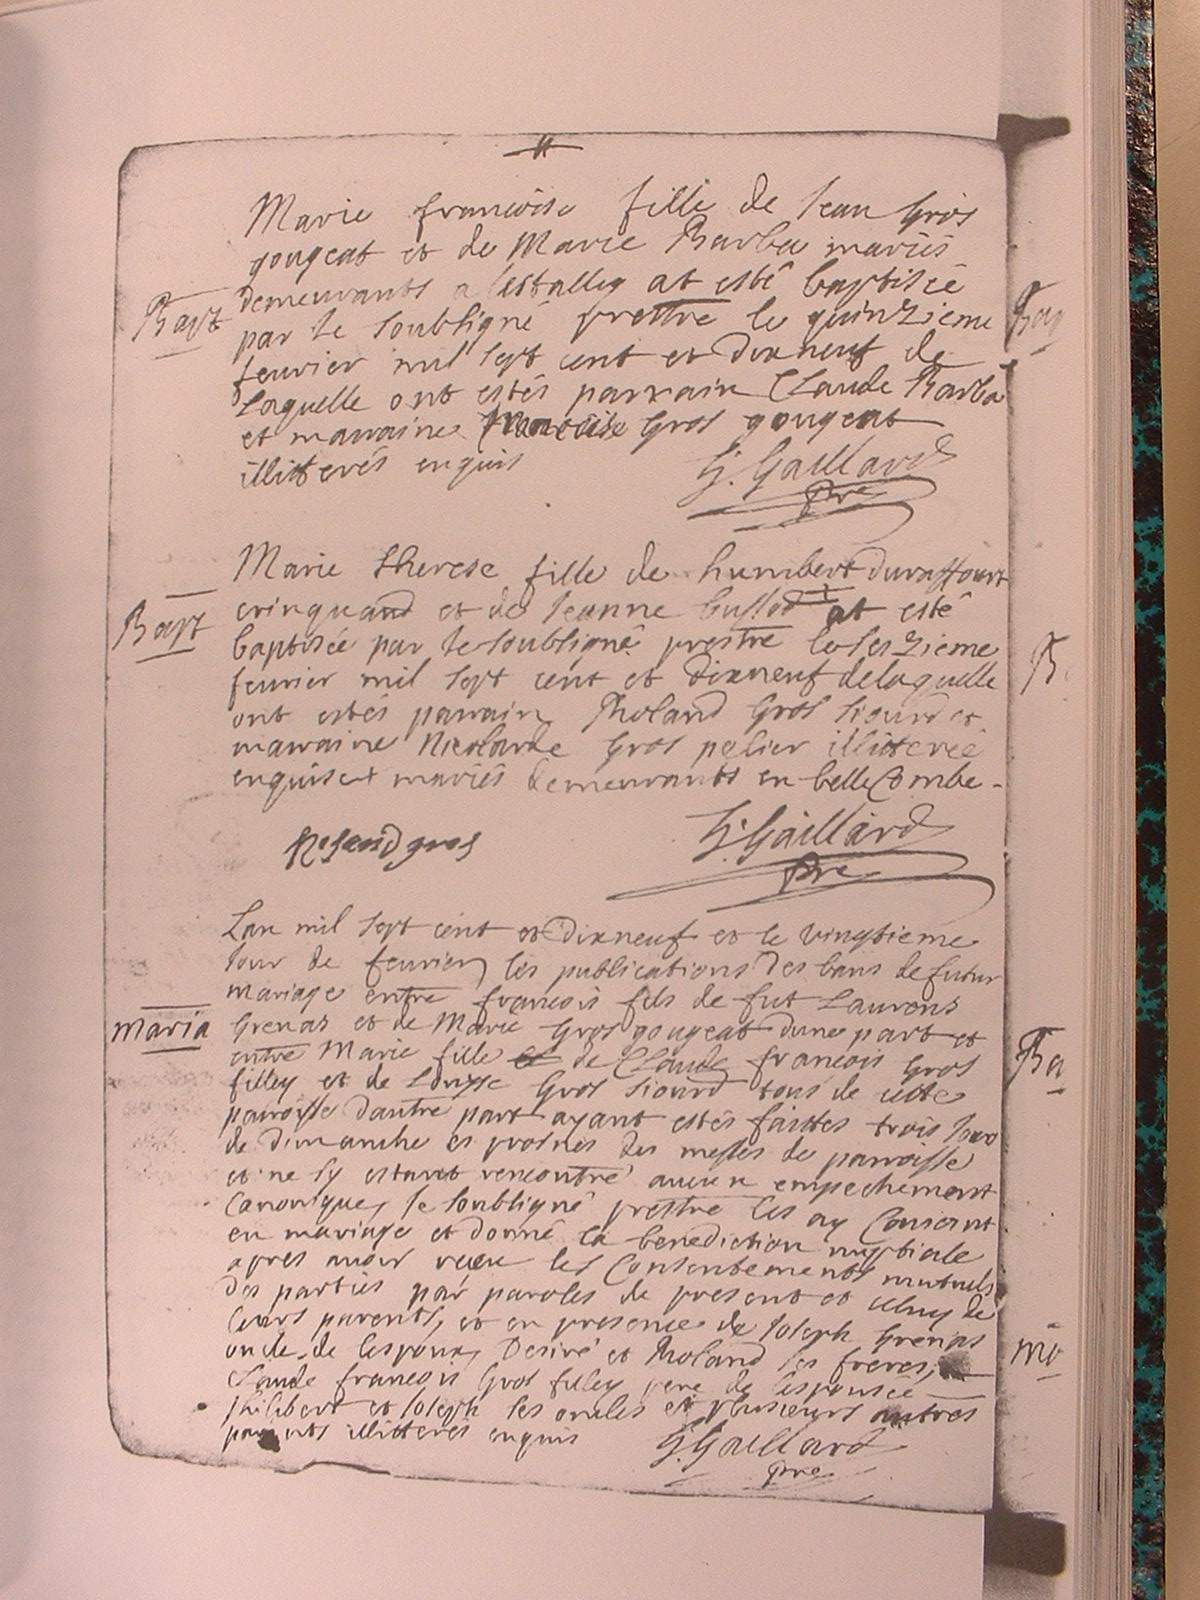 Marie francoise fille de Jean Gros
gougeat et de Marie Barba mariés
Bapt demeurants a lestalley at esté baptisée
par le soubsigné prestre le quinzieme
feurier mil sept cent et dixneuf de
laquelle ont estés parrain Claude Barba
et marraine francoise Gros gougeat
illitterés enquis
G. Gaillard
pre
Marie Therese fille de humbert duraffourt
Bapt crinquand et de Jeanne at esté
baptisée par le soubsigné prestre le sezzieme
feurier mil sept cent et dixneuf de laquelle
ont estés parrain Roland Gros siourd et
marraine Nicolarde Gros pelier illitterée
enquise et mariés demeurants en belle Combe
Roland gros
G. Gaillard
pre
Lan mil sept cent et dixneuf et le vingtieme
Jour de feurier les publications des bans de futur
mariage entre francois fils de fut Laurens
maria Grenas et de Marie Gros gougeat dune part et
entre Marie fille de Claude francois Gros
filley et de Louyse Gros siourd tous de cette
parroisse dautre part ayant estés faittes trois Jours
de dimanche es prosnes des messes de parroisse
et ne sy estant rencontré aucun empechement
Canonique, Je soubsigné prestre les ay Conioint
en mariage et donné la benediction nuptiale
apres auoir receu les Consentements mutuels
des partiés par paroles de present et celuy de
leurs parents, et en presence de Joseph Grenas
oncle de lespoux, Desiré et Roland ses freres,
Claude francois Gros filley pere de lespousée
philibert et Joseph ses oncles et plusieurs autres
parents illitterés enquis
G. Gaillard
pre